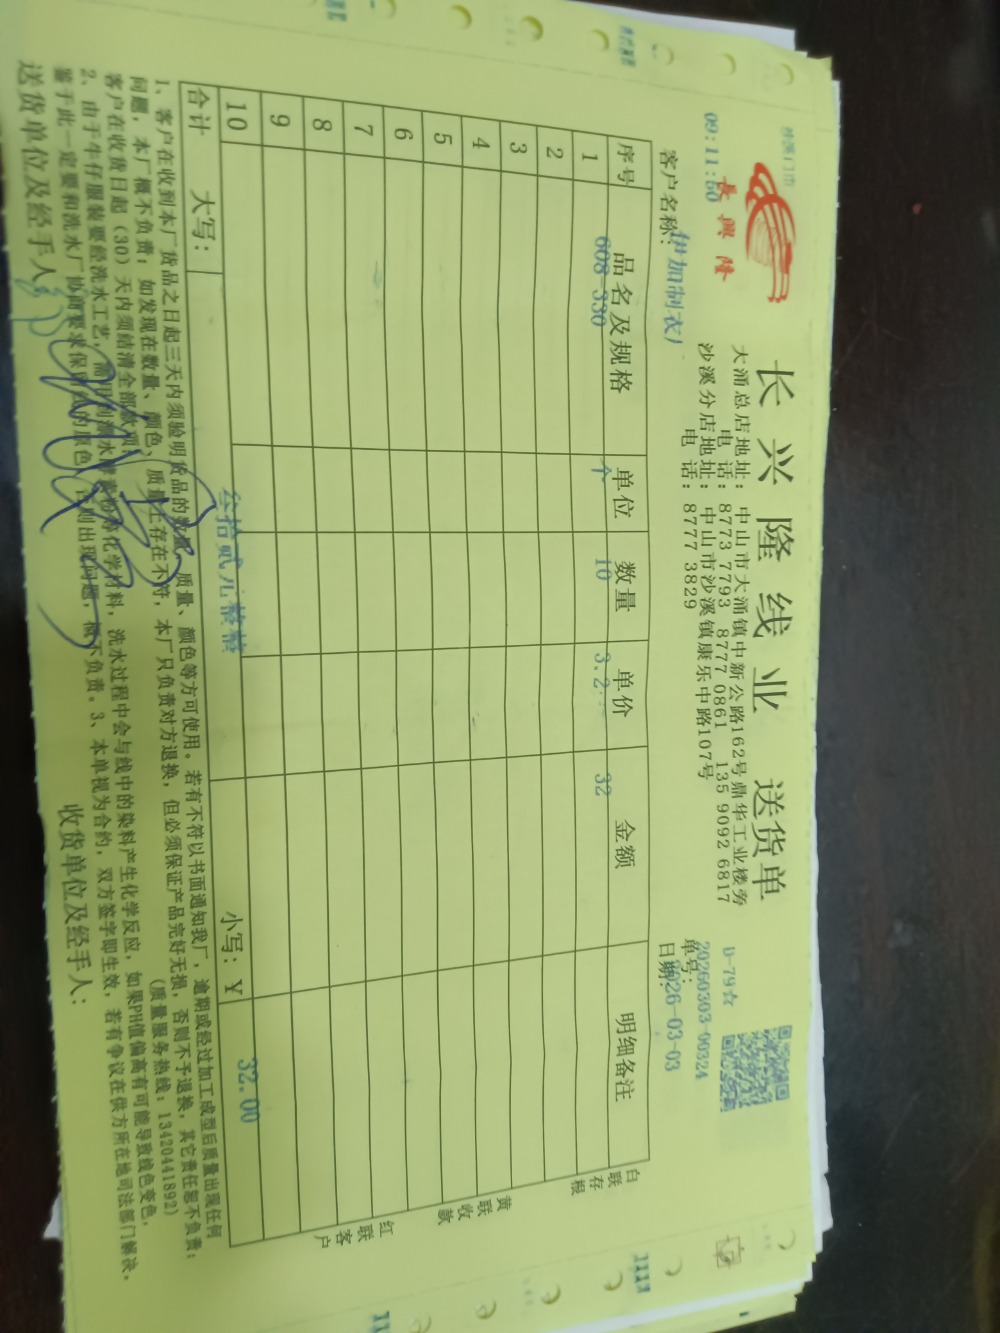 长兴隆线业 送货单
長興隆
09:11:50
大涌总店地址：中山市大涌镇中新公路162号鼎华工业楼旁
电 话：8773 7793 8777 0861 135 9092 6817
沙溪分店地址：中山市沙溪镇康乐中路107号
电 话：8777 3829
D-79☆
单号：20260303-00324
日期：2026-03-03
客户名称：伊加制衣厂
序号 品名及规格 单位 数量 单价 金额 明细备注
1 608-330 个 10 3.2 32
2
3
4
5
6
7
8
9
10
合计 大写：叁拾贰元整整 小写：¥ 32.00
白联存根 黄联收款 红联客户
1、客户在收到本厂货品之日起三天内须验明货品的数量、质量、颜色等方可使用。若有不符以书面通知我厂，逾期或经过加工成型后质量出现任何
问题，本厂概不负责；如发现在数量、颜色、质量上存在不符，本厂只负责对方退换，但必须保证产品完好无损，否则不予退换，其它责任恕不负责；
客户在收货日起（30）天内须结清全部款项。 （质量服务热线：13420441892）
2、由于牛仔服装要经洗水工艺，需用到漂水、酵素粉等化学材料，洗水过程中会与线中的染料产生化学反应，如果PH值偏高有可能导致线色变色，
鉴于此一定要和洗水厂协商要求保留线的原色，否则出现问题，概不负责。3、本单视为合约，双方签字即生效，若有争议在供方所在地司法部门解决。
送货单位及经手人： 收货单位及经手人：